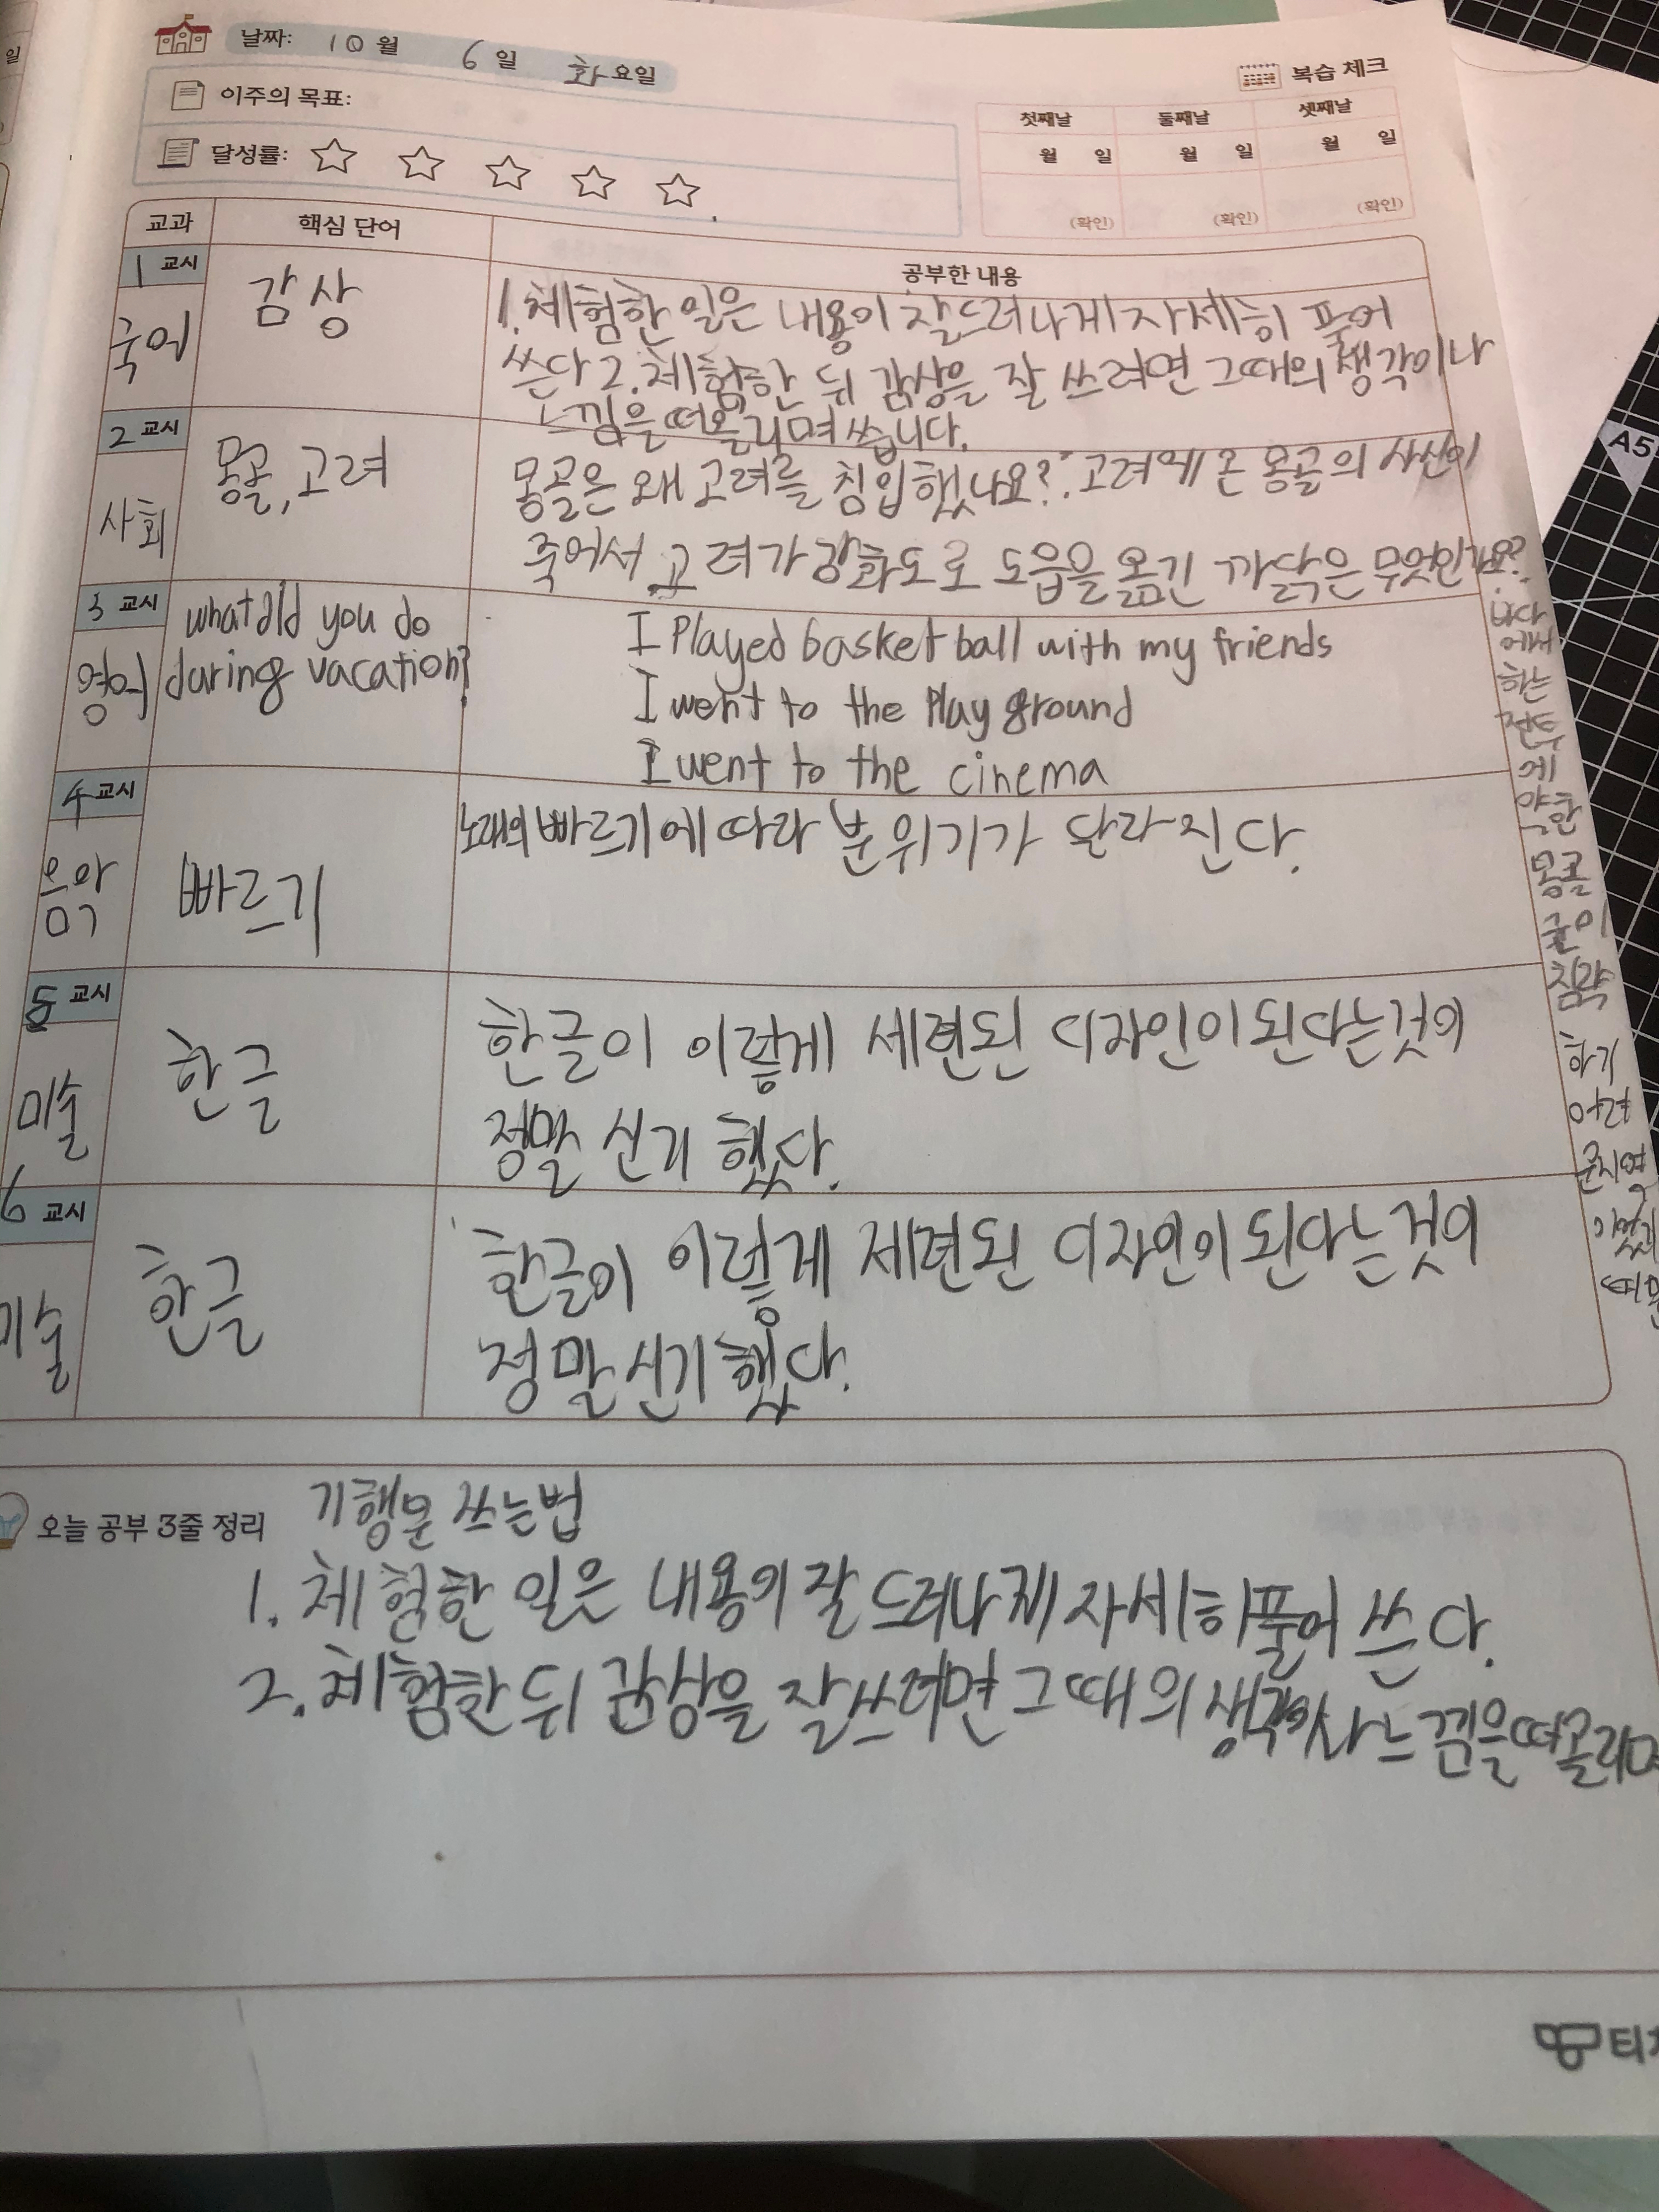 일
날짜: 10월 6일 화요일
복습 체크
이주의 목표:
달성률:
첫째날 둘째날 셋째날
월 일 월 일 월 일
(확인) (확인) (확인)
교과 핵심 단어 공부한 내용
1 교시
국어
감상
1. 체험한 일은 내용이 잘드러나게 자세히 풀어
쓴다 2. 체험한 뒤 감상을 잘 쓰려면 그때의 생각이나
느낌을 떠올리며 씁니다.
2 교시
사회
몽골, 고려
몽골은 왜 고려를 침입했나요? 고려에 온 몽골의 사신이
죽어서 고려가 강화도로 도읍을 옮긴 까닭은 무엇인가요?
바다
에서
하는
전투
에
약한
몽골
군이
침략
하기
어려
운지역
이었기
때문
3 교시
영어
what did you do
during vacation?
I Played basket ball with my friends
I went to the Play ground
I went to the cinema
4 교시
음악
빠르기
노래의 빠르기에 따라 분위기가 달라진다.
5 교시
미술
한글
한글이 이렇게 세련된 디자인이 된다는것이
정말 신기했다.
6 교시
미술
한글
한글이 이렇게 세련된 디자인이 된다는 것이
정말 신기했다.
오늘 공부 3줄 정리
기행문 쓰는법
1. 체험한 일은 내용이 잘 드러나게 자세히 풀어 쓴다.
2. 체험한 뒤 감상을 잘 쓰려면 그때의 느낌을 떠올리며
A5